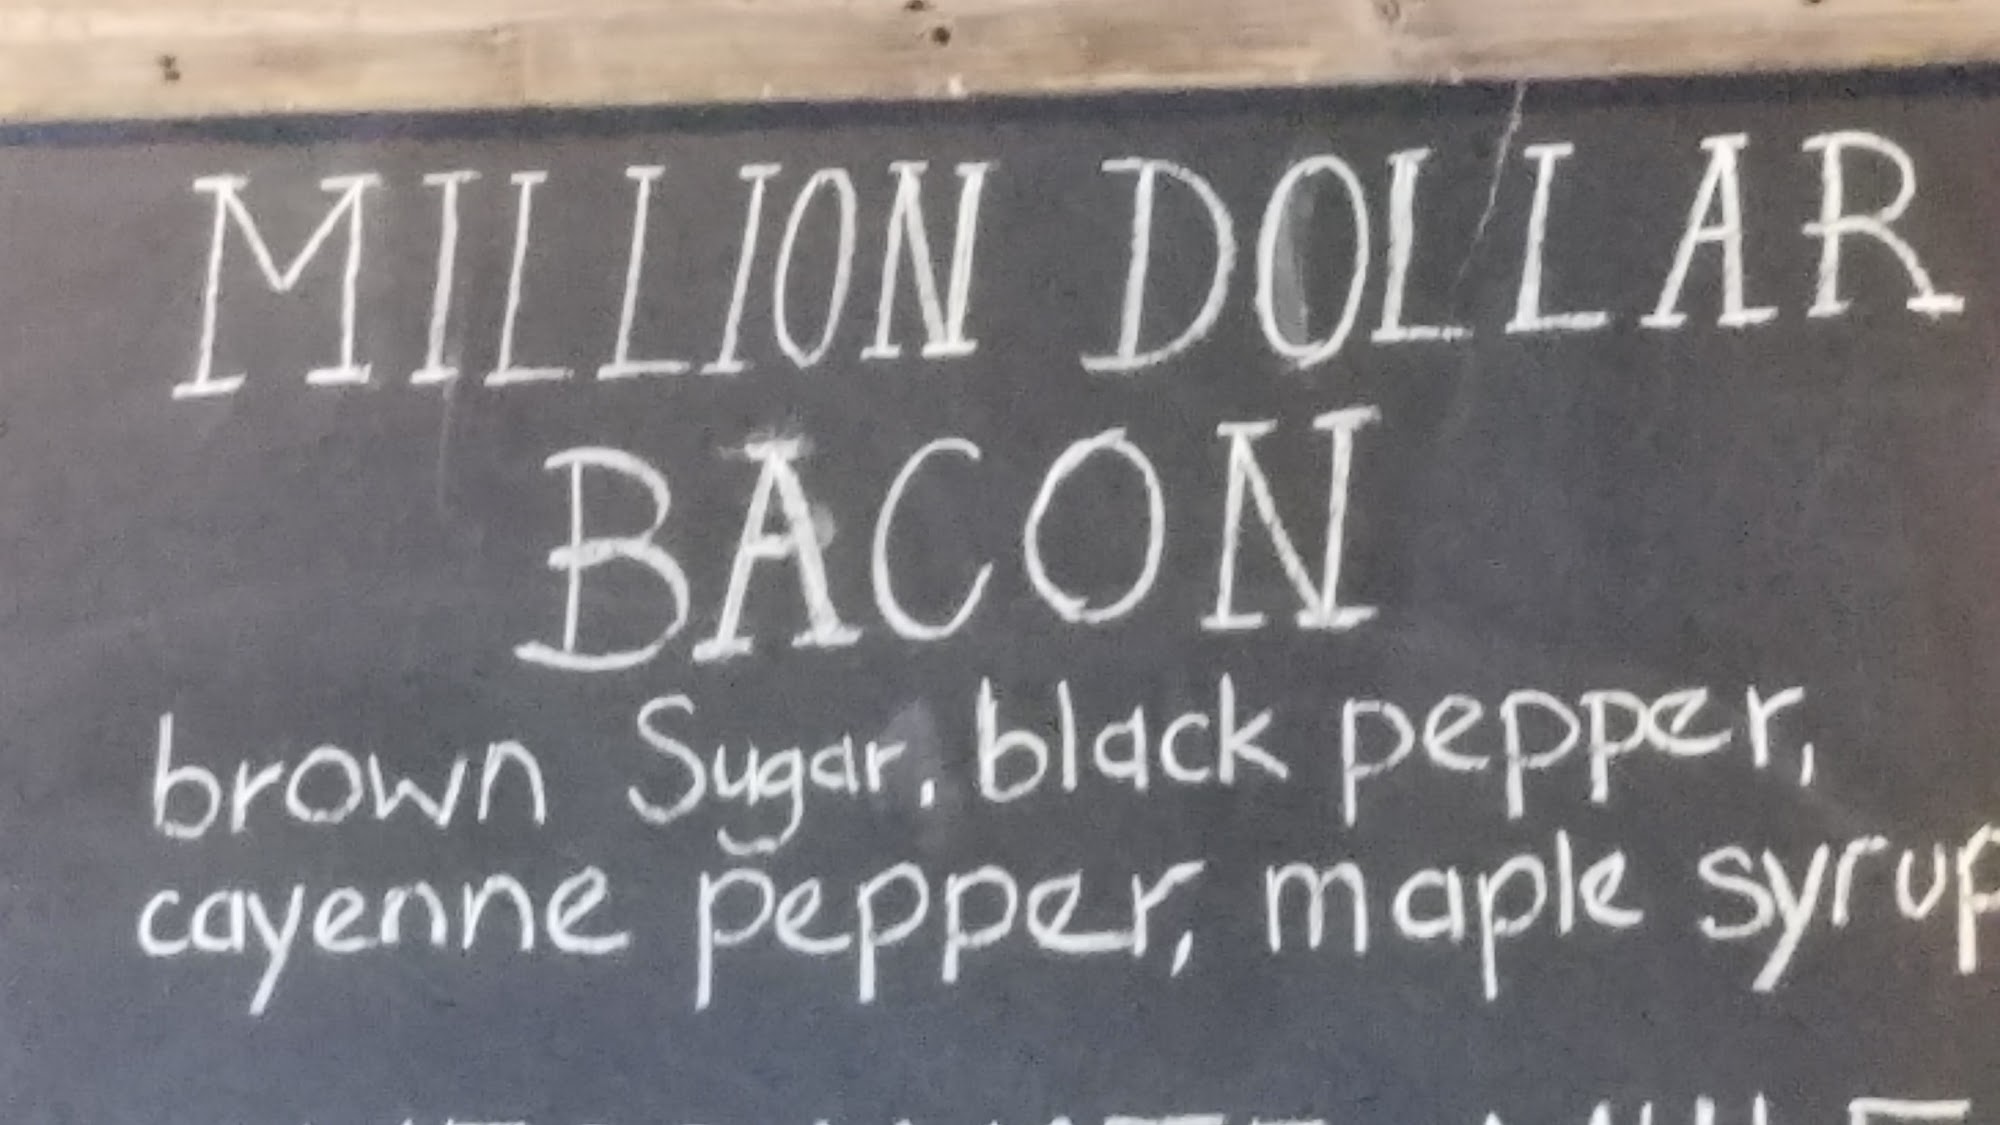 MILLION DOLLAR
BACON
brown Sugar, black pepper,
cayenne pepper, maple syrup